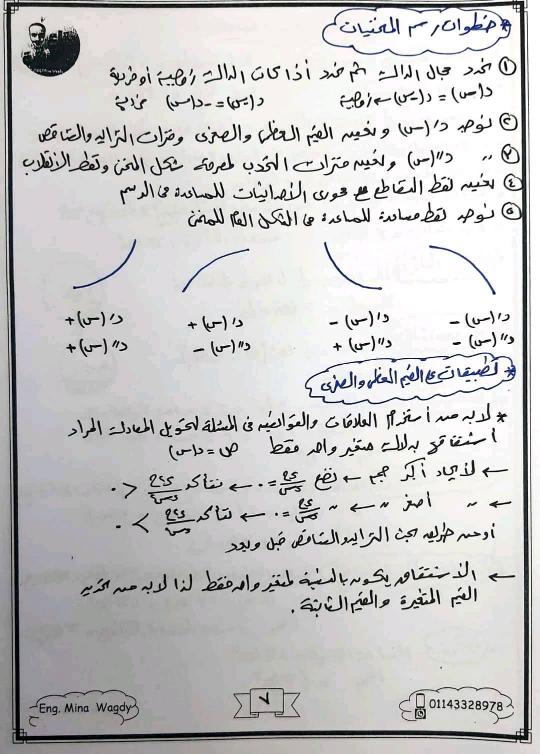 * خطوات رسم المنحنيات
① نحدد مجال الدالة ثم نحدد أذا كانت الدالة زوجية أو فردية
د(-س) = د(س) ← زوجية    د(-س) = -د(س) فردية
② نوجد د/(س) ونعين القيم العظمى والصغرى وفترات التزايد والتناقص
③ " د//(س) ونعين فترات التحدب لمعرفة شكل المنحنى ونقط الأنقلاب
④ نعين نقط التقاطع مع محورى الأحداثيات للمساعدة فى الرسم
⑤ نوجد نقط مساعدة للمساعدة فى الشكل العام للمنحنى
د/(س) -    د/(س) -    د/(س) +    د/(س) +
د//(س) -    د//(س) +    د//(س) -    د//(س) +
* تطبيقات على القيم العظمى والصغرى
* لابد من أستخدام العلاقات والقوانين فى المسئلة لتحويل المعادلة المراد
أشتقاقها بدلالة متغير واحد فقط    ص = د(س)
← لأيجاد أكبر حجم ← نضع دح/دس = ٠ ← نتأكد د٢ح/دس٢ < ٠
← " أصغر " ← " دح/دس = ٠ ← نتأكد د٢ح/دس٢ > ٠
أو عن طريق بحث التزايد والتناقص قبل وبعد
← الأشتقاق يكون بالنسبة لمتغير واحد فقط لذا لابد من تحديد
القيم المتغيرة والقيم الثابتة.
Eng. Mina Wagdy
٧
01143328978